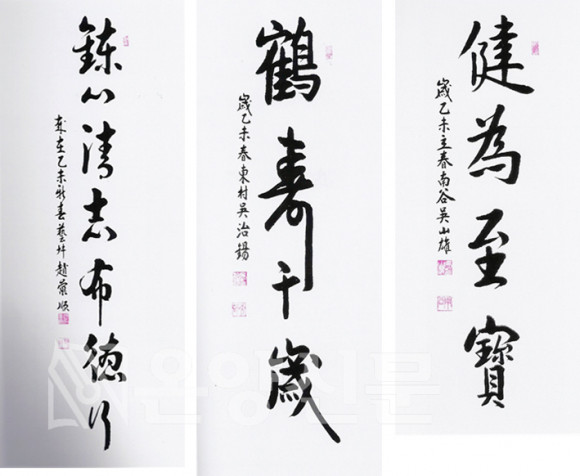 健為至寶
歲乙未立春南谷吳山雄
鶴壽千歲
歲乙未春東村吳治錫
鍊心清志布德行
歲在乙未新春藝坪趙榮順
온양신문